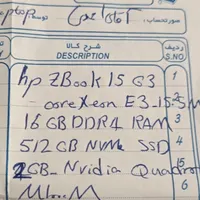 laptop
صورتحساب:
ردیف
S.NO.
شرح کالا
DESCRIPTION
1 hp ZBook 15 G3
2 core Xeon E3-15-5M
3 16 GB DDR4 RAM
4 512 GB NVMe SSD
5 2GB_Nvidia Quadro
6